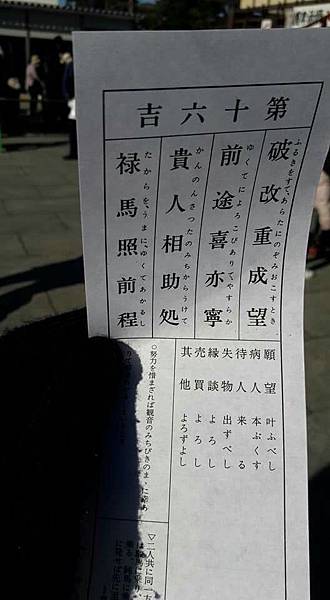 第十六吉
破改重成望
ふるきをすて、あらたにのぞみおこすとき
前途喜亦寧
ゆくてによろこびありてやすらか
貴人相助処
かんのんさつたのみちからうけて
禄馬照前程
たからを、うまに、ゆくてあかるし
願望 叶ふべし
病人 本ぷくす
待人 来る
失物 出ずべし
縁談 よろし
売買 よろし
其他 よろずよし
○努力を惜まざれば観音のみちびきのま
に幸あ
▽二人共に同一方